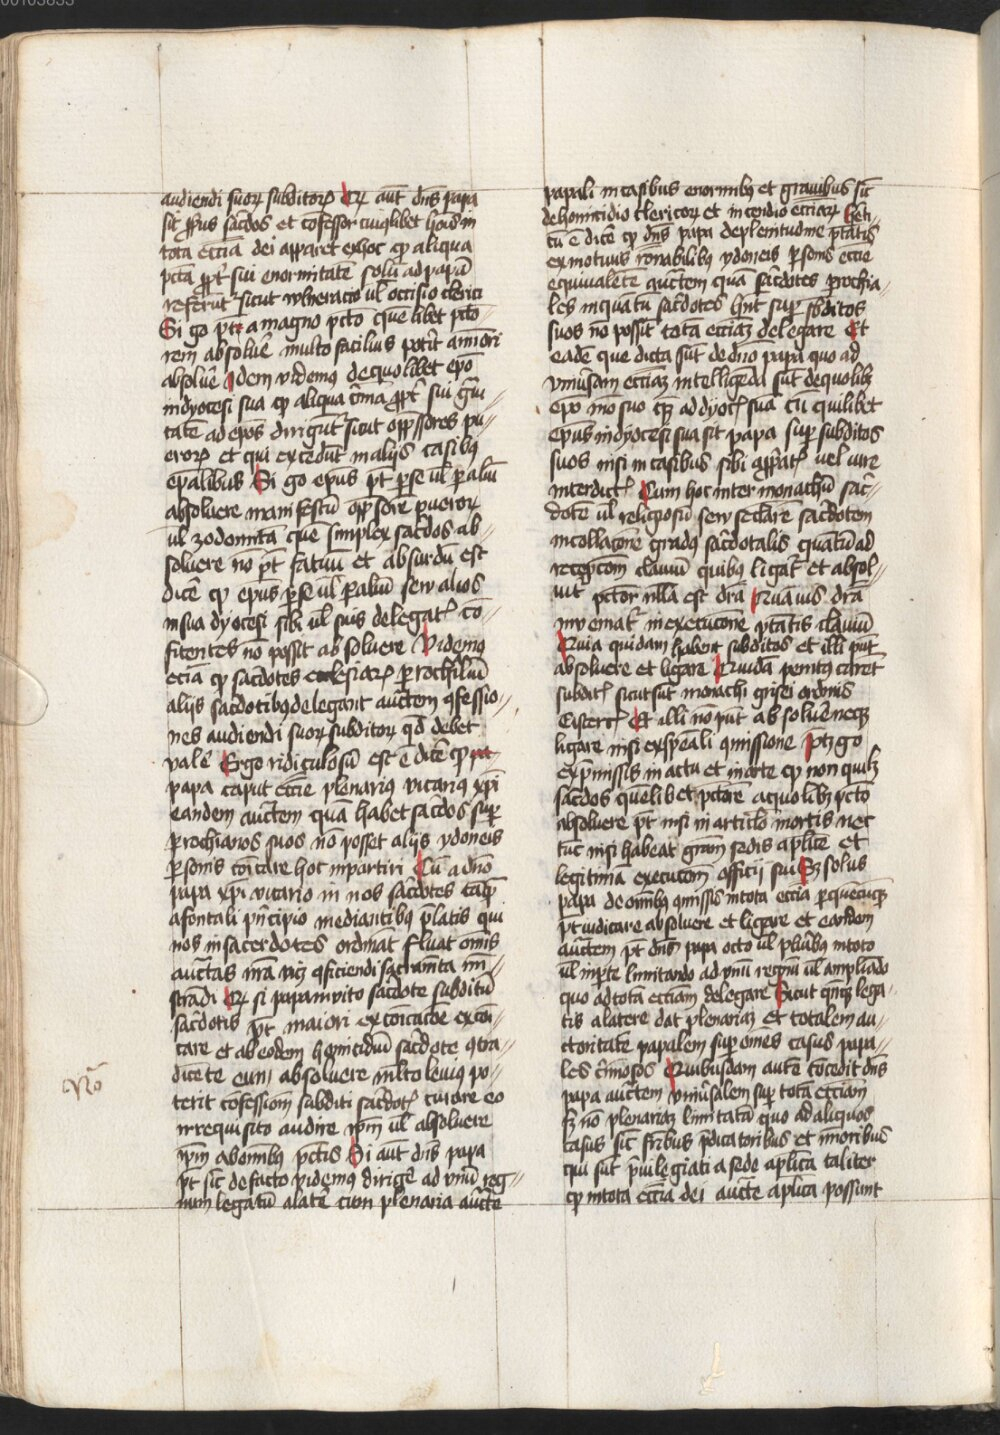 00105855
audiendi suoꝝ subditoꝝ Qꝫ aut̄ dn̄s papa
sit ꝓpͥus sac̄dos et cōfessor cuiuslibet hoīs in
tota ecc̄ia dei apparet ex hoc ꝙ aliqua
pctā ꝓpt̄ sui enormitatē solū ad papā
referūt᷑ sicut vulneracio ul̄ occisio clerici
Si g̊o pt̄ a magno pctō quēlibet pctō⸗
rem absoluē multo facilius potit a minori
absoluē Idem videmꝰ de quolibet ep̄o
in dyocesi sua ꝙ aliqua cͥmīa ꝓpt̄ sui gͣui⸗
tatē ad ep̄os dirigūt᷑ sicut opp̄ssores pu⸗
eroꝝ et qui excedūt in alijs casibꝰ
ep̄alibus Si g̊o ep̄us pt̄ ꝑ se ul̄ ꝑ aliū
absoluere manifestū opp̄ssorē pueroꝝ
ul̄ zodomitā quē simplex sac̄dos ab⸗
soluere nō pt̄ fatuū et absurdū est
dicē ꝙ ep̄us ꝑ se ul̄ ꝑ aliū seu alios
in sua dyocesi sibi ul̄ suis delegat᷑ cō⸗
fitentes nō possit absoluere Videmꝰ
eciā ꝙ sac̄dotes ecclesiaꝝ ꝑrochiliū
aliis sac̄dotibꝰ delegant auctem ꝯfessio⸗
nes audiendi suoꝝ subditoꝝ qd̄ debet
valē Ergo ridiculosū est ē dicē ꝙ
papa caput ecc̄ie plenariꝰ vicariꝰ xp̄i
eandem auctem quā habet sac̄dos suꝑ
ꝑrochianos suos nō posset aliis ydoneis
ꝑsonis cōicare hoc impartiri Cū a dn̄o
papa xp̄i vicario in nos sac̄dotes tāqꝫ
a fontali pͥncipio mediantibꝰ p̄latis qui
nos in sacerdotes ordināt fluat oīnis
auctas nr̄a vicꝫ ꝯficiendi sacramēta mi⸗
strādi Qꝫ si papa inuito sac̄dote subditū
sac̄dotis pt̄ maiori excōicacōe excōi⸗
care et ab eodem homicidiū sac̄dote ꝯtra⸗
dicēte eum absoluere ml̄to leuiꝰ po⸗
terit cōfessionē subditi sac̄dot᷑ curare eo
irrequisito audire ip̄m ul̄ absoluere
ip̄m ab oīnibꝰ pctīs Si aut̄ dn̄s papa
pt̄ sic̄ de facto videmꝰ dirigē ad vnū reg⸗
num legatū a latē cum plenaria aucte
No
papali in casibus enormibꝰ et grauibus sic̄
de homicidio clericoꝝ et incendio ecciaꝝ
tū ē dicē ꝙ dn̄s papa de plenitudine ptātis
ex motiuis ronabilibꝰ ydoneis ꝑsonis ecc̄ie
equiualētē auctem quā sac̄dotes ꝑrochia⸗
les inquātū sac̄dotes hn̄t suꝑ sbditos
suos nō possit totā ecc̄iaꝫ delegare Et
eadē que dicta sūt de dn̄o papa quo ad
vniūsam ecc̄iaꝫ intelligēda sūt de quolibꝫ
ep̄o in̄o suo qꝫ ad dyoc᷑ suā cū quilibet
ep̄us in dyocesi sua sit papa suꝑ subditos
suos nisi in casibus sibi vel iure
interdict᷑ Cum hoc inter monachū sac̄⸗
dotē ul̄ religiosū seu seclarē sac̄dotem
in collacōne gradꝰ sac̄dotalis quātū ad
recepcōm clauiū quibꝰ ligat᷑ et absol⸗
uit᷑ pctor nlla est dr̄a Quāuis dr̄a
inuemat᷑ in execucōne ptātis clauiū
Quia quidam habent subditos et illi pn̄t
absoluere et ligare Quidā penitꝰ carēt
subdit᷑ sicut sūt monachi grisei ordinis
Cisterc᷑ Et illi nō pn̄t absoluē neqꝫ
ligare nisi ex sp̄eali ꝯmissione Ptꝫ g̊o
ex p̄missis in actu et in arte ꝙ non quilꝫ
sac̄dos quēlibet pctōrē a quolibꝫ pctō
absoluere pt̄ nisi in articlo mortis nec
tūc nisi habeat gram̄ sedis aplīce et
legitimā executōem officij sui Sꝫ solus
papa de oīnibꝰ ꝯmissis in tota ecc̄ia ꝑ quēcūqꝫ
pt̄ iudicare absoluere et ligare et eandem
auctem pt̄ dn̄s papa octo ul̄ plūibꝰ in toto
ul̄ in ꝑte limitando ad vnū regnū ul̄ ampliādo
quo ad totā ecc̄iam delegare Sicut lega⸗
tis a latere dat plenariaꝫ et totalem au⸗
ctoritatē papalem suꝑ om̄es casus papa⸗
les cͥmīosos Quibusdam autē cōcedit dn̄s
papa auctem vniūsalem suꝑ totā ecc̄iam
sꝫ nō plenariaꝫ limitatā quo ad aliquos
casus sic̄ fr̄ibus p̄dicatoribus et minoribus
qui sūt pͥuilegiati a sede aplīca taliter
ꝙ in tota ecc̄ia dei aucte aplīca possunt